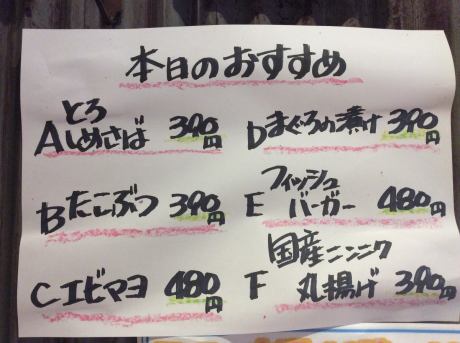 本日のおすすめ
A とろしめさば 390円
B たこぶつ 390円
C エビマヨ 480円
D まぐろの漬け 390円
E フィッシュバーガー 480円
F 国産ニンニク丸揚げ 390円